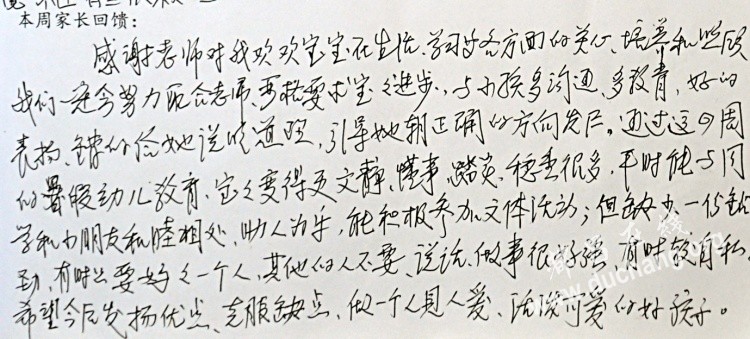 本周家长回馈:
感谢老师对我欢欢宝宝在生活、学习等各方面的关心、培养和照顾
我们一定会努力配合老师,严格要求宝宝进步,与小孩多沟通、多教育,好的
表扬、错的给她说明道理,引导她朝正确的方向发展。通过这个周
的暑假幼儿教育,宝宝变得更文静、懂事、踏实、稳重很多,平时能与同
学和小朋友和睦相处,助人为乐,能积极参加文体活动;但缺少一份
动,有时只要妈妈一个人,其他的人不要,说话、做事很好强,有时较自私,
希望今后发扬优点、克服缺点,做一个人见人爱、活泼可爱的好孩子。